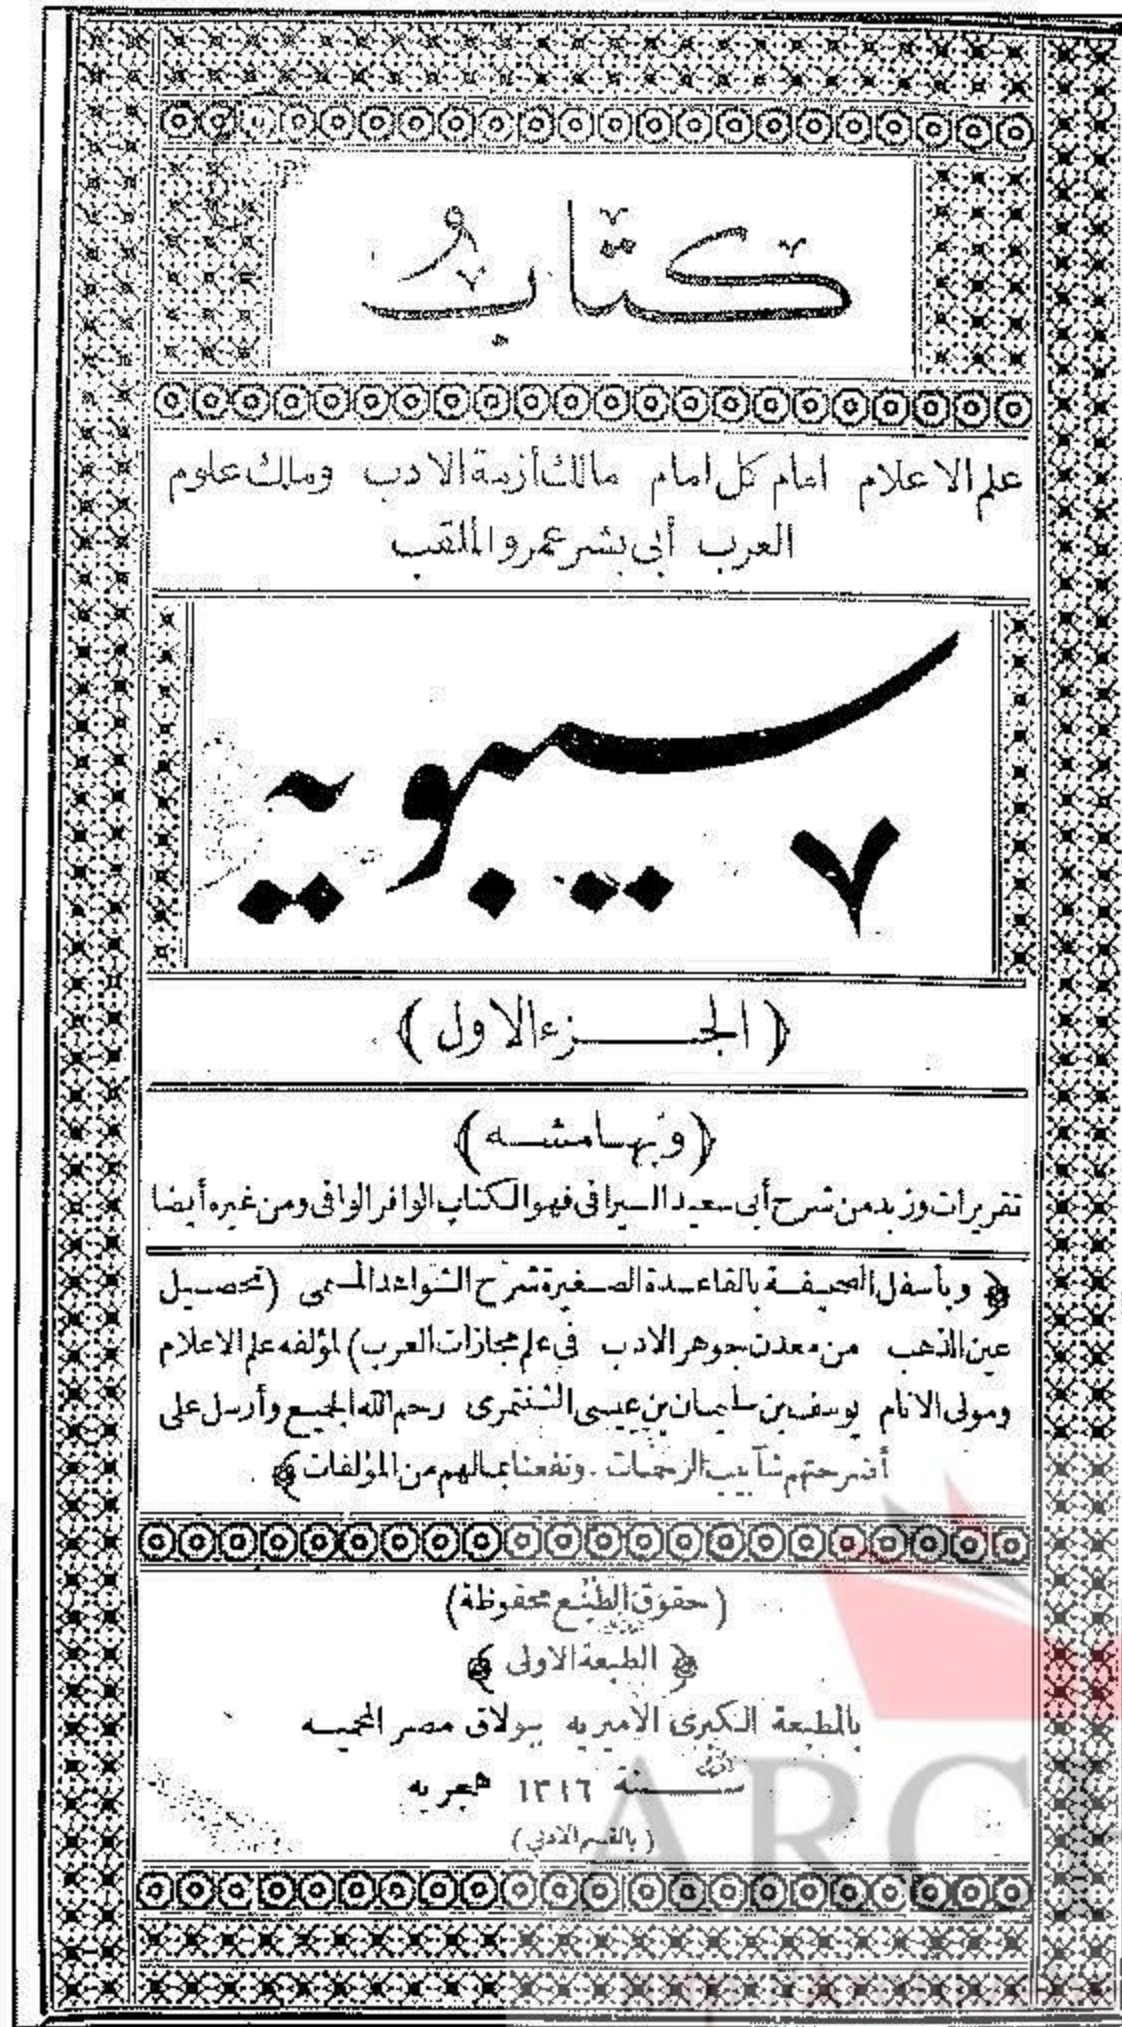 كتابُ
علم الاعلام امام كل امام مالك أزمة الادب وملك علوم
العرب أبى بشر عمرو الملقب
سيبويه
(الجـــــزء الاول)
(وبهامشه)
تقريرات وزبد من شرح أبى سعيد السيرافى فهو الكتاب الوافر الوافى ومن غيره أيضا
﴿ وبأسفل الصحيفة بالقاعدة الصغيرة شرح الشواهد المسمى (تحصيل
عين الذهب من معدن جوهر الادب فى علم مجازات العرب) لمؤلفه علم الاعلام
ومولى الانام يوسف بن سليمان بن عيسى الشنتمرى رحم الله الجميع وأرسل على
أضرحتهم شآبيب الرحمات ونفعنا بمالهم من المؤلفات ﴾
(حقوق الطبع محفوظة)
﴿ الطبعة الاولى ﴾
بالمطبعة الكبرى الاميريه ببولاق مصر المحميه
ســـنة ١٣١٦ هجريه
(بالقسم الادبى)
ARCH